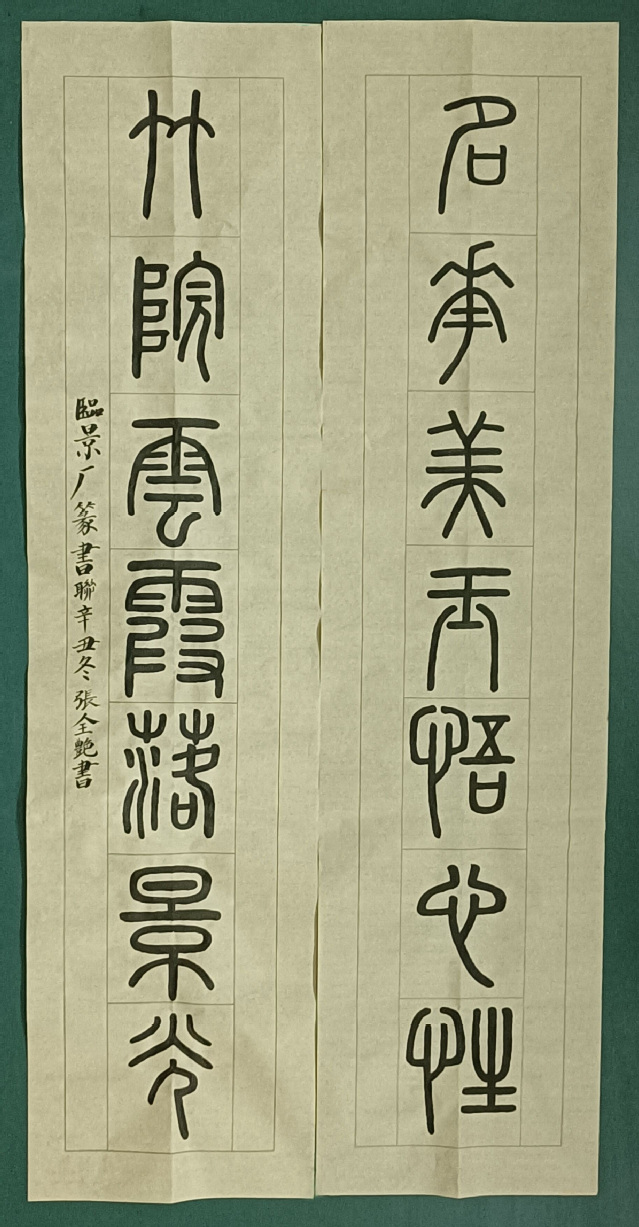 名美悟心性
竹院雲霞落景光
臨景厂篆書聯辛丑冬張全艷書